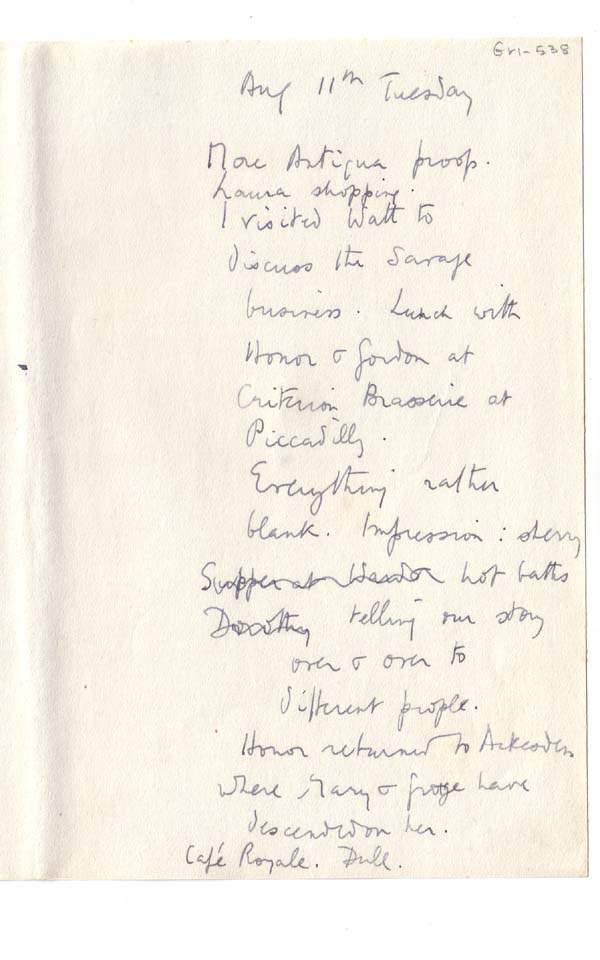 Gri-538
Aug 11th Tuesday
More Antigua proofs.
Laura shopping.
I visited Watt to
discuss the Savage
business. Lunch with
Honor & Gordon at
Criterion Brasserie at
Piccadilly.
Everything rather
blank. Impression: sherry
Supper at hot baths
Dorothy telling our story
over & over to
different people.
Honor returned to
where Mary & George have
descended on her.
Café Royale. Dull.